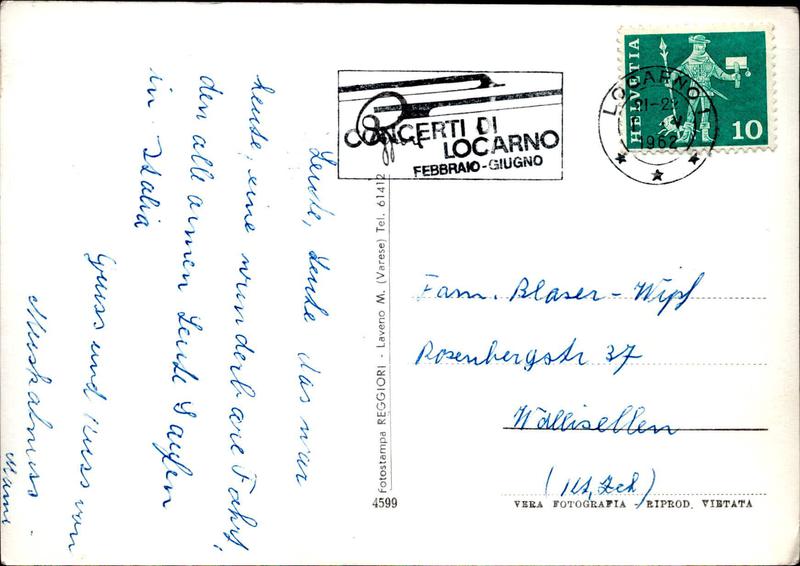 Leute, Leute das war
heute, eine wunderbare Fahrt,
den alle armen Leute Saufen
in Italia
Gruss und Kuss von
Muskatnuss -
Mami
CONCERTI DI
LOCARNO
FEBBRAIO-GIUGNO
HELVETIA
10
LOCARNO 1
21-22
1962
Fotostampa REGGIORI - Laveno M. (Varese) Tel. 61412
Fam. Blaser-Wipf
Rosenbergstr 37
Wallisellen
(Kt. Zch)
4599
VERA FOTOGRAFIA - RIPROD. VIETATA